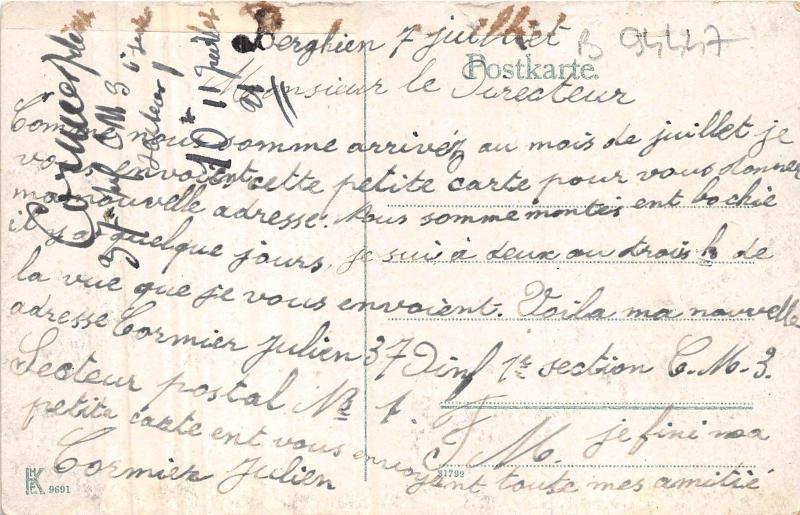 Berghien 7 juillet
B 94447
Postkarte.
Monsieur le Directeur
Comme nous somme arrivéz au mois de juillet je
vous envoient cette petite carte pour vous donner
ma nouvelle adresse. Nous somme montés ent bochie
il y a quelque jours, je sui à deux ou trois k de
la vue que je vous envoient. Voila ma nouvelle
adresse Cormier Julien 37 D inf 1re section C.M.3.
Secteur postal No 1. F. M. je fini ma
petite carte ent vous envoyent toute mes amitié
Cormier Julien
9691
31792
37
CM 3
10 11 juillet
21